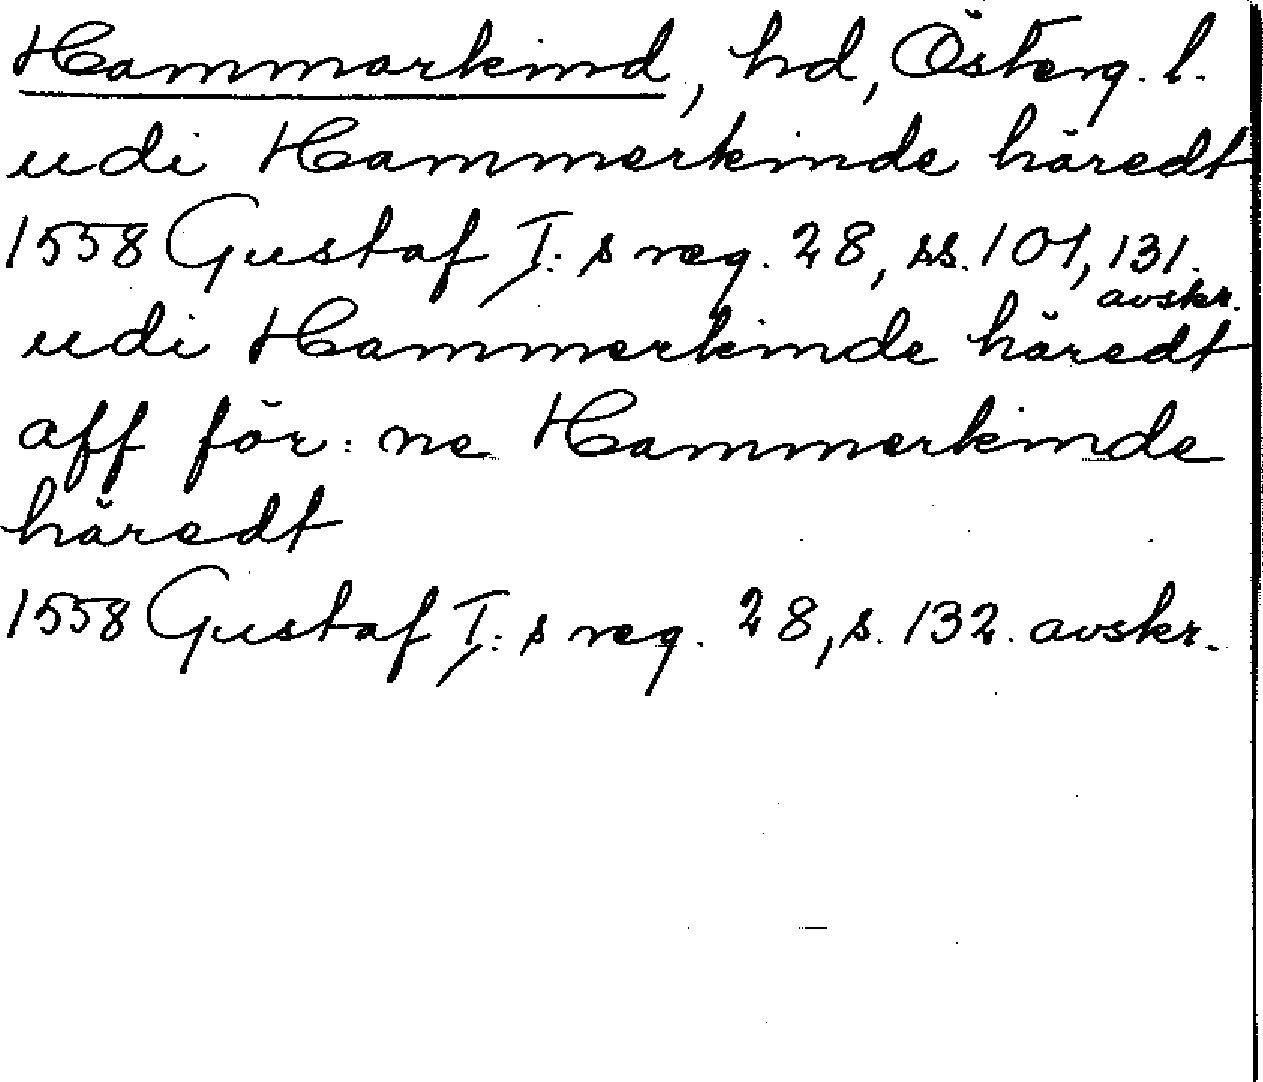 Hammarkind, hd, Österg. l.
udi Hammerkinde häredt
1558 Gustaf I:s reg. 28, ss. 101, 131.
avskr.
udi Hammerkinde häredt
aff för: ne Hammerkinde
häredt
1558 Gustaf I:s reg. 28, s. 132. avskr.